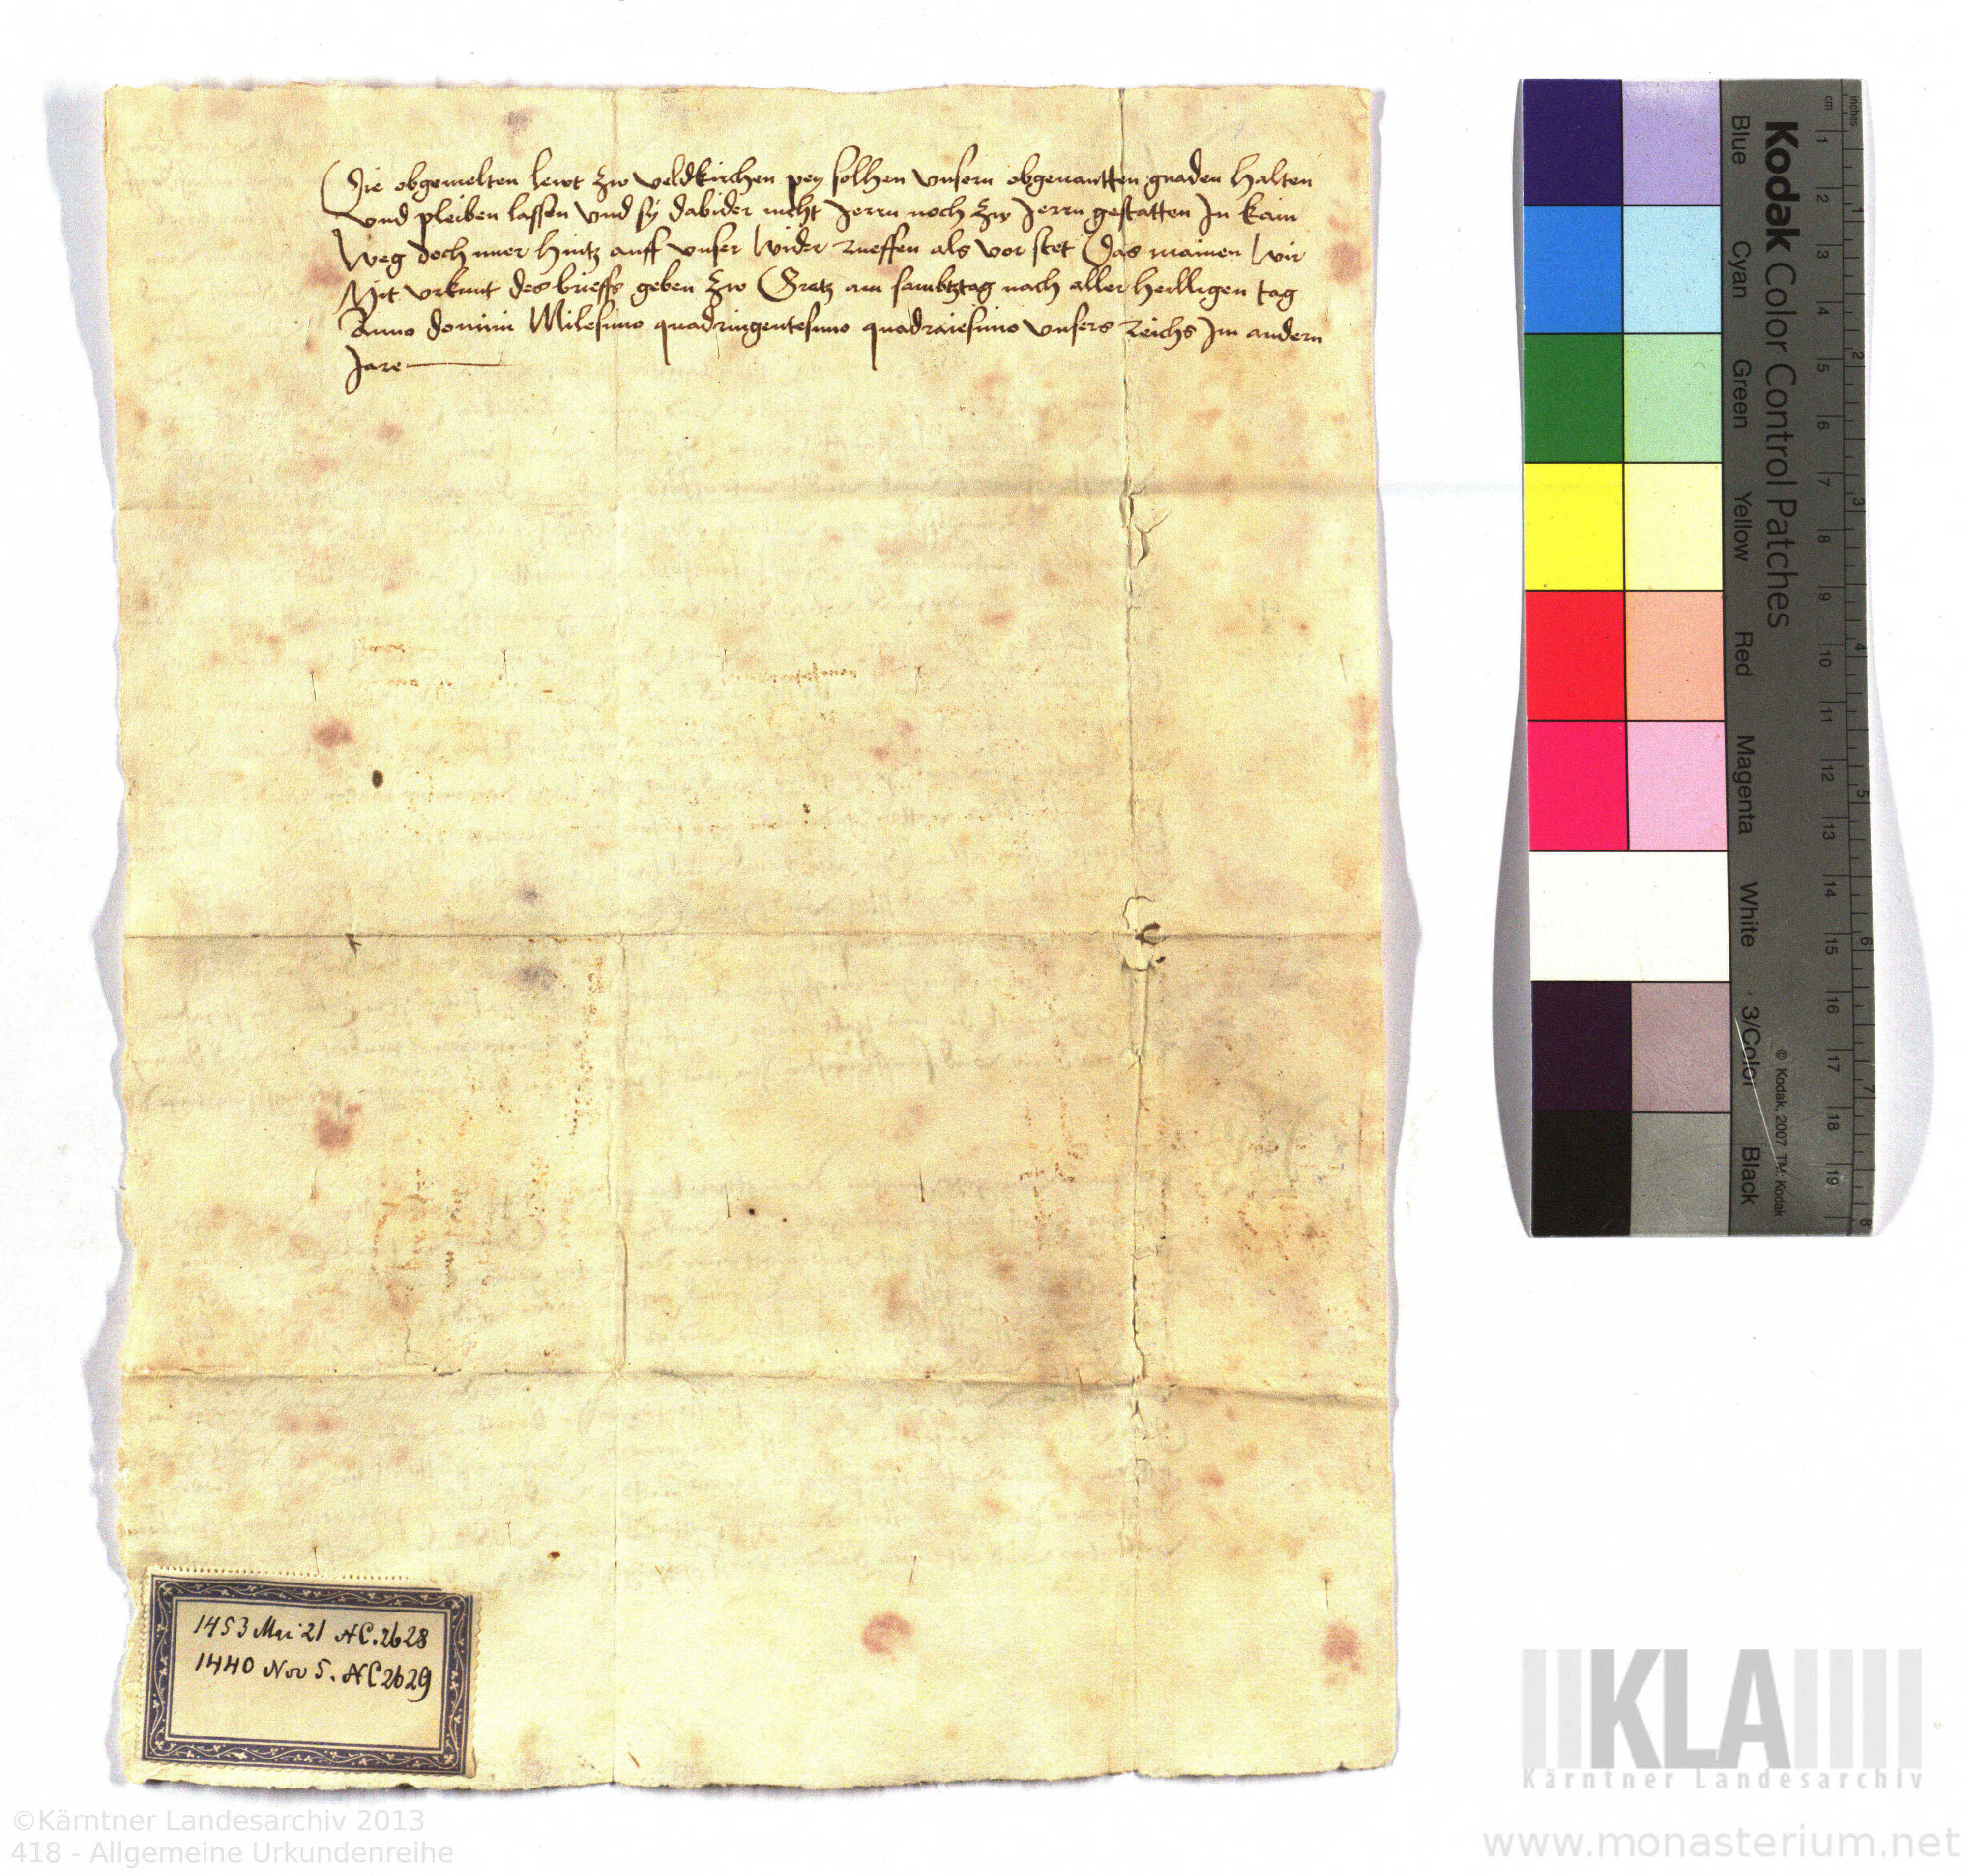 Die obgemelten lewt zw veldkirchen pey solhen vnsern obgenantten gnaden halten
vnd pleiben lassen vnd sy dabider nicht Jerrn noch zw Jerrn gestatten In kain
weg doch nuer hintz auff vnser wider rueffen als vor stet Das mainen wir
Mit vrkunt des brieffs geben zw Gretz am sambtztag nach aller heilligen tag
Anno domini Milesimo quadringentesimo quadraiesimo vnsers Reichs Im andern
Jare
1453 Mai 21 AC. 2628
1440 Nov 5. AC 2629
Kodak Color Control Patches
Blue Cyan Green Yellow Red Magenta White 3/Color Black
© Kodak, 2007 TM: Kodak
cm 1 2 3 4 5 6 7 8 9 10 11 12 13 14 15 16 17 18 19
inches 1 2 3 4 5 6 7 8
KLA
Kärntner Landesarchiv
©Kärntner Landesarchiv 2013
418 - Allgemeine Urkundenreihe
www.monasterium.net